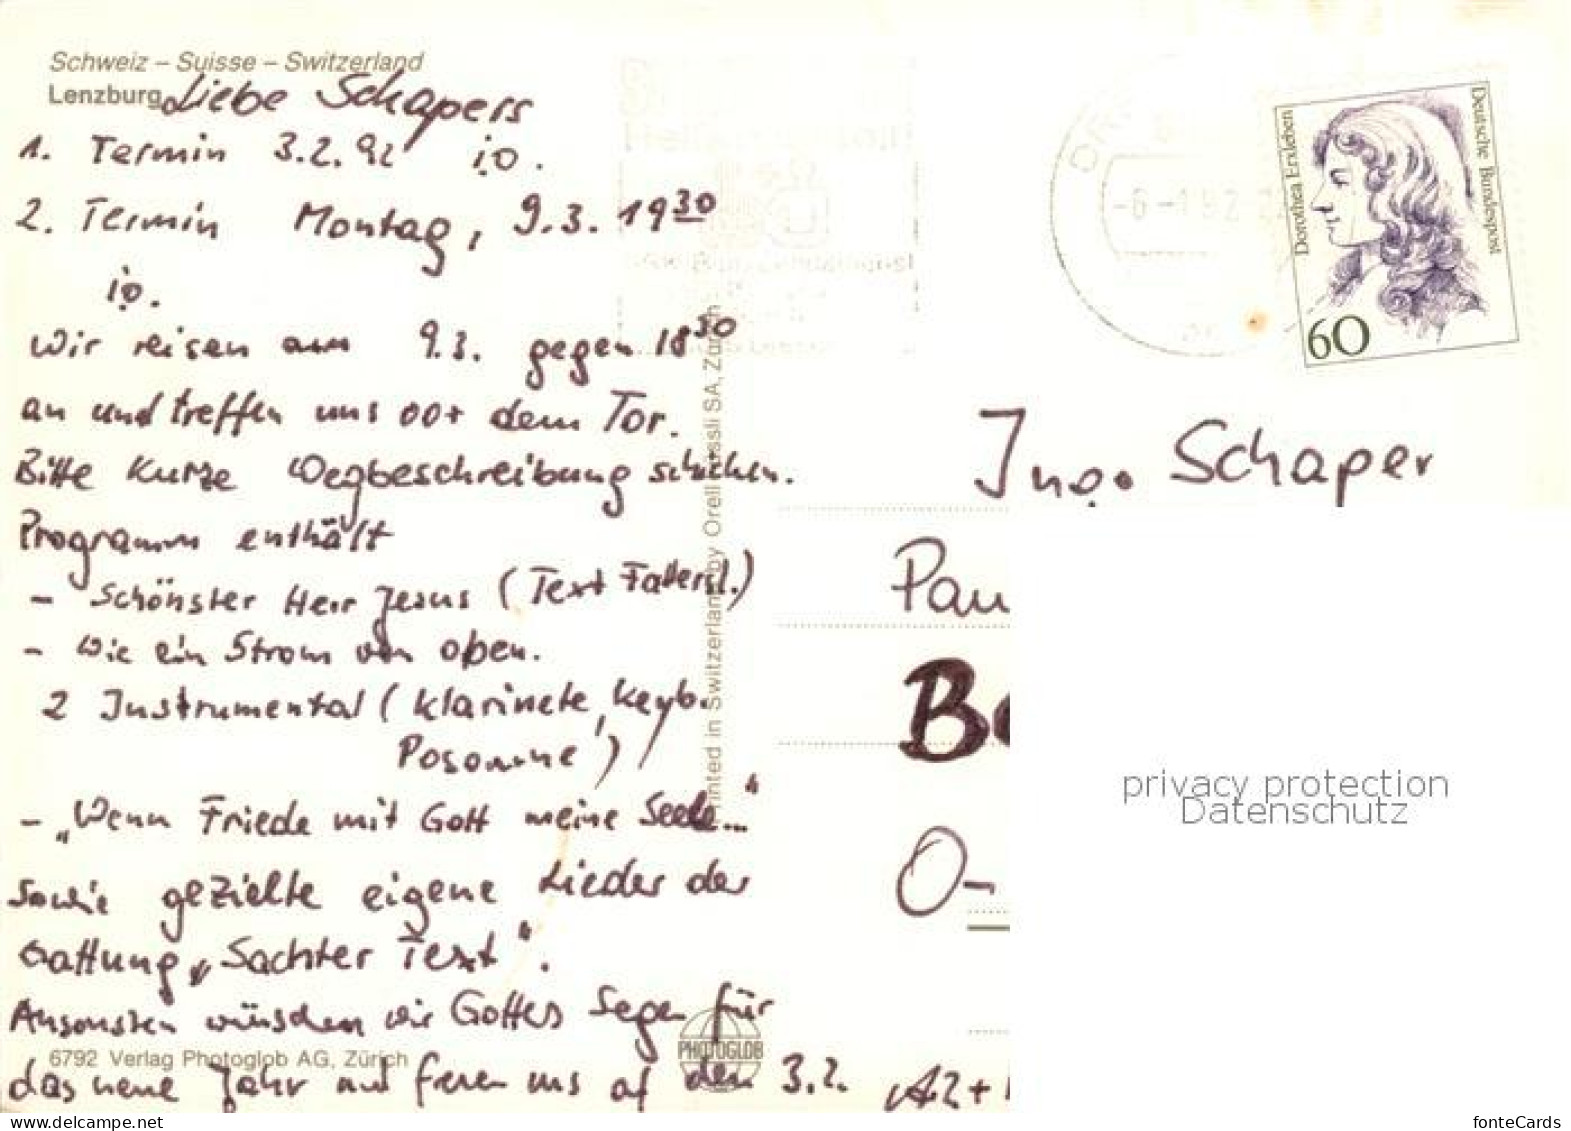 Schweiz – Suisse – Switzerland
Lenzburg
Liebe Schapers
1. Termin 3.2.92 i.o.
2. Termin Montag, 9.3. 19 30
i.o.
Wir reisen am 9.3. gegen 18 30
an und treffen uns vor dem Tor.
Bitte kurze Wegbeschreibung schicken.
Programm enthält
– Schönster Herr Jesus (Text Fallersl.)
– Wie ein Strom von oben.
2 Instrumental (Klarinette, Keyb.
Posaune)
– „Wenn Friede mit Gott meine Seele..."
sowie gezielte eigene Lieder der
Gattung „Sachter Text".
Ansonsten wünschen wir Gottes Segen für
das neue Jahr und freuen uns auf den 3.2.
6792 Verlag Photoglob AG, Zürich
PHOTOGLOB
Printed in Switzerland by Orell Füssli SA, Zürich
-6-1.92
Deutsche Bundespost
Dorothea Erxleben
60
Ingo Schaper
Pau
Be
O-
privacy protection
Datenschutz
www.delcampe.net
fonteCards